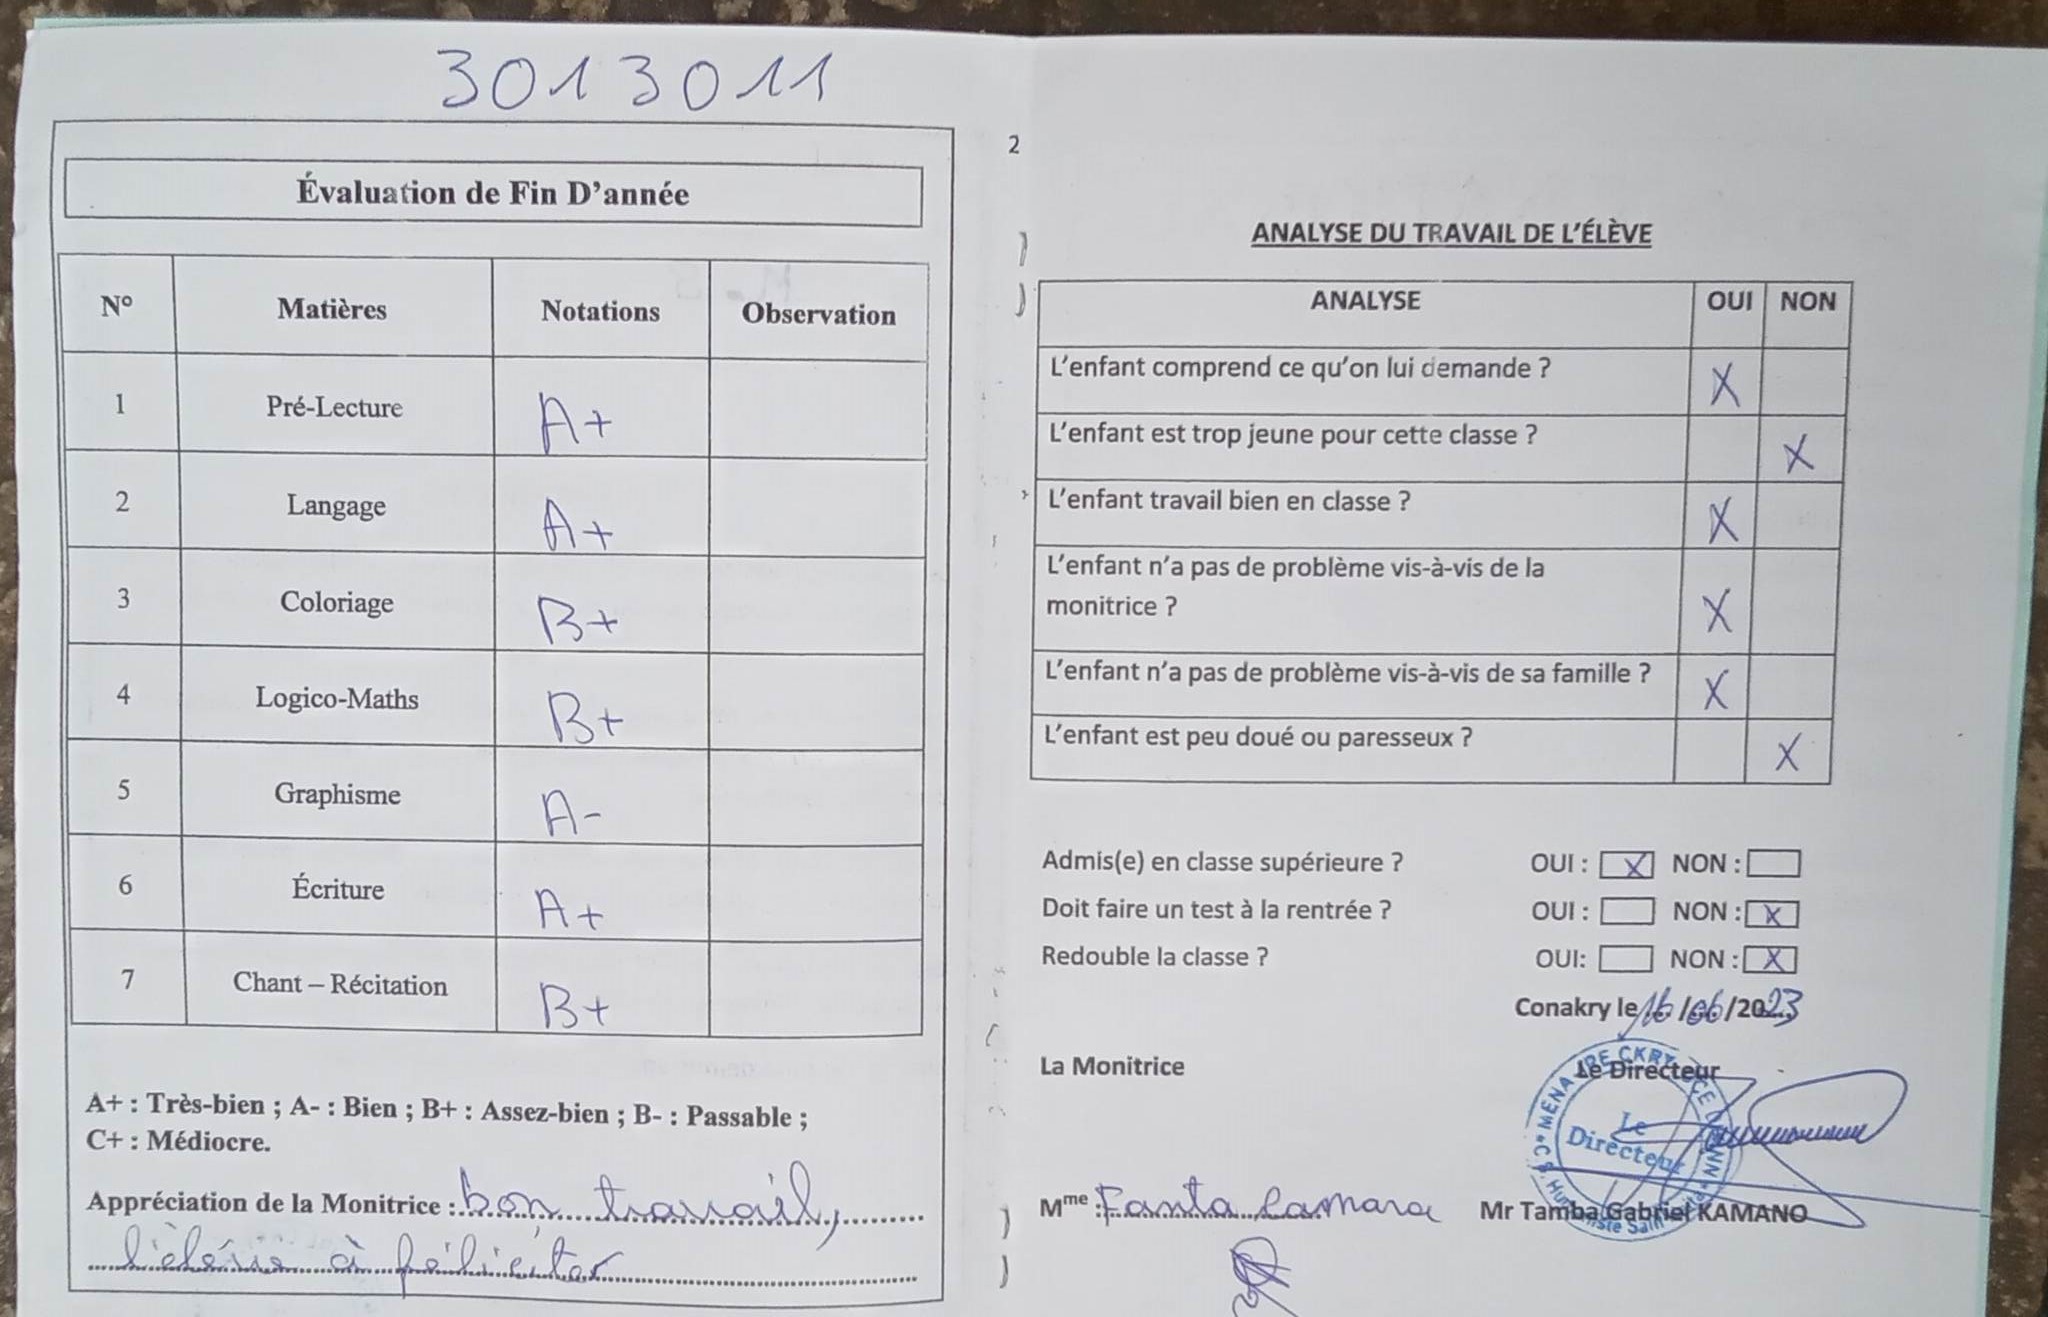 3013011
Évaluation de Fin D'année
N° Matières Notations Observation
1 Pré-Lecture A+
2 Langage A+
3 Coloriage B+
4 Logico-Maths B+
5 Graphisme A-
6 Écriture A+
7 Chant – Récitation B+
A+ : Très-bien ; A- : Bien ; B+ : Assez-bien ; B- : Passable ;
C+ : Médiocre.
Appréciation de la Monitrice : bon travail,
l'élève à féliciter
2
ANALYSE DU TRAVAIL DE L'ÉLÈVE
ANALYSE OUI NON
L'enfant comprend ce qu'on lui demande ? X
L'enfant est trop jeune pour cette classe ? X
L'enfant travail bien en classe ? X
L'enfant n'a pas de problème vis-à-vis de la
monitrice ? X
L'enfant n'a pas de problème vis-à-vis de sa famille ? X
L'enfant est peu doué ou paresseux ? X
Admis(e) en classe supérieure ? OUI : X NON :
Doit faire un test à la rentrée ? OUI : NON : X
Redouble la classe ? OUI: NON : X
Conakry le 16/06/2023
La Monitrice Le Directeur
Le
Directeur
Mme : Fanta Camara Mr Tamba Gabriel KAMANO